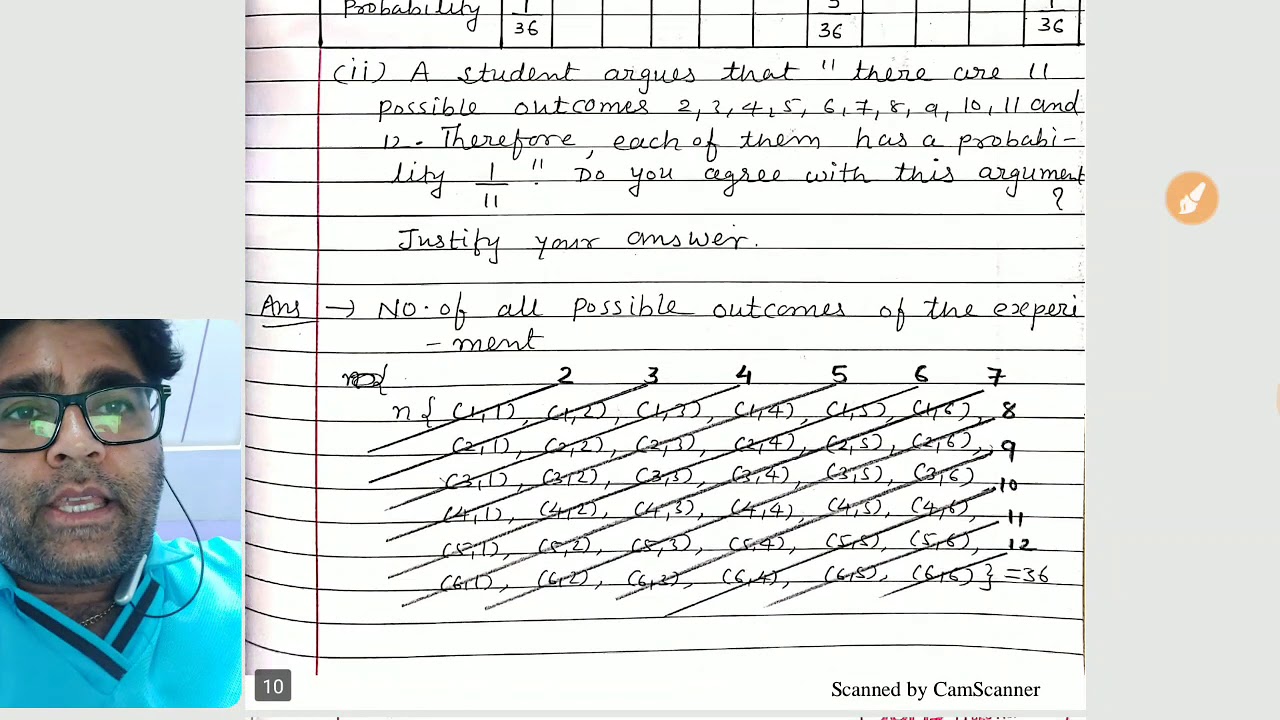 Probability 1/36 5/36 1/36
(ii) A student argues that " there are 11
possible outcomes 2, 3, 4, 5, 6, 7, 8, 9, 10, 11 and
12. Therefore, each of them has a probabi-
lity 1/11 ". Do you agree with this argument
?
Justify your answer.
Ans → NO. of all possible outcomes of the experi
- ment
2 3 4 5 6 7
n { (1,1), (1,2), (1,3), (1,4), (1,5), (1,6), 8
(2,1), (2,2), (2,3), (2,4), (2,5), (2,6), 9
(3,1), (3,2), (3,3), (3,4), (3,5), (3,6) 10
(4,1), (4,2), (4,3), (4,4), (4,5), (4,6), 11
(5,1), (5,2), (5,3), (5,4), (5,5), (5,6), 12
(6,1), (6,2), (6,3), (6,4), (6,5), (6,6) } = 36
10
Scanned by CamScanner